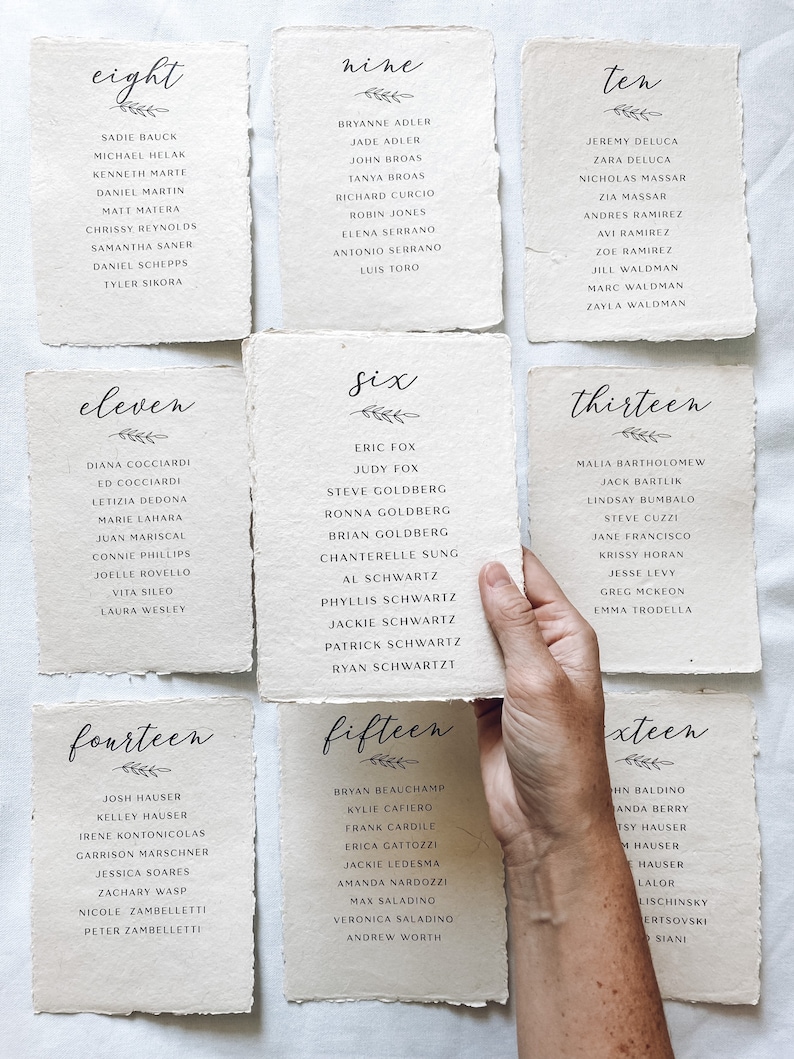 eight
SADIE BAUCK
MICHAEL HELAK
KENNETH MARTE
DANIEL MARTIN
MATT MATERA
CHRISSY REYNOLDS
SAMANTHA SANER
DANIEL SCHEPPS
TYLER SIKORA
nine
BRYANNE ADLER
JADE ADLER
JOHN BROAS
TANYA BROAS
RICHARD CURCIO
ROBIN JONES
ELENA SERRANO
ANTONIO SERRANO
LUIS TORO
ten
JEREMY DELUCA
ZARA DELUCA
NICHOLAS MASSAR
ZIA MASSAR
ANDRES RAMIREZ
AVI RAMIREZ
ZOE RAMIREZ
JILL WALDMAN
MARC WALDMAN
ZAYLA WALDMAN
eleven
DIANA COCCIARDI
ED COCCIARDI
LETIZIA DEDONA
MARIE LAHARA
JUAN MARISCAL
CONNIE PHILLIPS
JOELLE ROVELLO
VITA SILEO
LAURA WESLEY
six
ERIC FOX
JUDY FOX
STEVE GOLDBERG
RONNA GOLDBERG
BRIAN GOLDBERG
CHANTERELLE SUNG
AL SCHWARTZ
PHYLLIS SCHWARTZ
JACKIE SCHWARTZ
PATRICK SCHWARTZ
RYAN SCHWARTZT
thirteen
MALIA BARTHOLOMEW
JACK BARTLIK
LINDSAY BUMBALO
STEVE CUZZI
JANE FRANCISCO
KRISSY HORAN
JESSE LEVY
GREG MCKEON
EMMA TRODELLA
fourteen
JOSH HAUSER
KELLEY HAUSER
IRENE KONTONICOLAS
GARRISON MARSCHNER
JESSICA SOARES
ZACHARY WASP
NICOLE ZAMBELLETTI
PETER ZAMBELLETTI
fifteen
BRYAN BEAUCHAMP
KYLIE CAFIERO
FRANK CARDILE
ERICA GATTOZZI
JACKIE LEDESMA
AMANDA NARDOZZI
MAX SALADINO
VERONICA SALADINO
ANDREW WORTH
BALDINO
BERRY
HAUSER
HAUSER
HAUSER
LALOR
SIANI